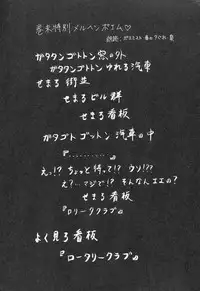 巻末特別メルヘンポエム♡
ガタタンゴトトン窓の外
ガタタンゴトトンゆれる汽車
せまる街並
せまるビル群
せまる看板
ガタゴトゴットン汽車の中
『‥‥‥‥‥‥』
えっ!?ちょっと待って!?ウソ!??
え?…マジで!?そんなんエエの?
せまる看板
『ロリークラブ』
よく見ろ看板
『ロータリークラブ』